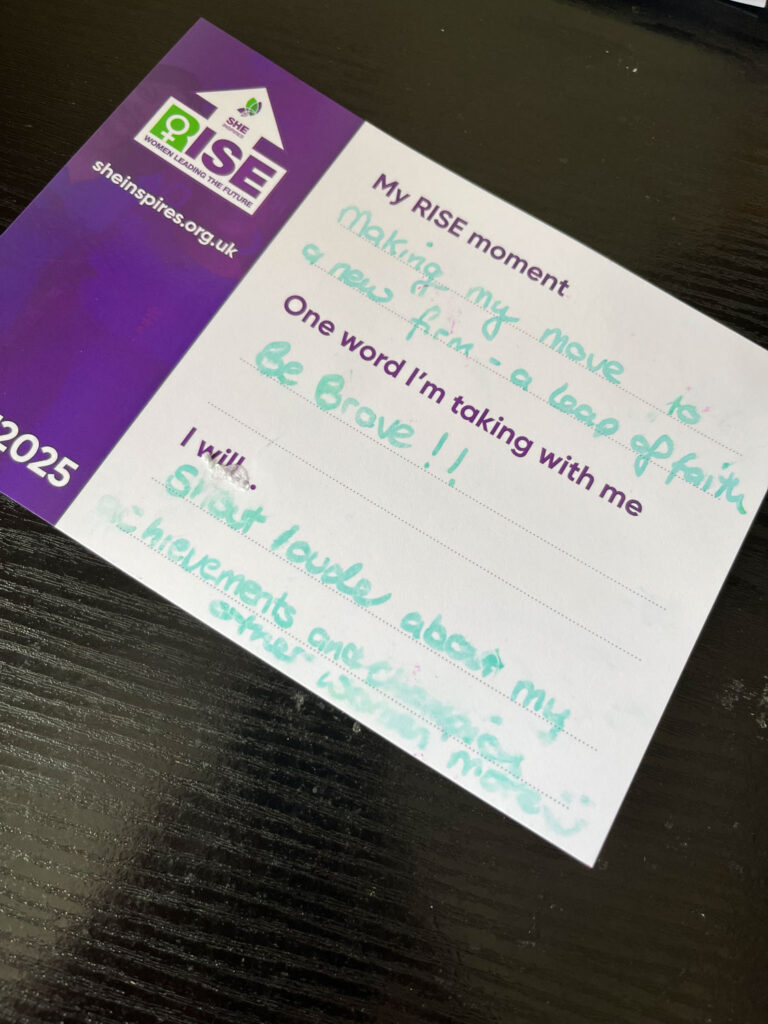 SHE
INSPIRES
RISE
WOMEN LEADING THE FUTURE
sheinspires.org.uk
2025
My RISE moment
Making my move to
a new firm - a leap of faith
One word I'm taking with me
Be Brave!!
I will...
Shout louder about my
achievements and champion
other women more